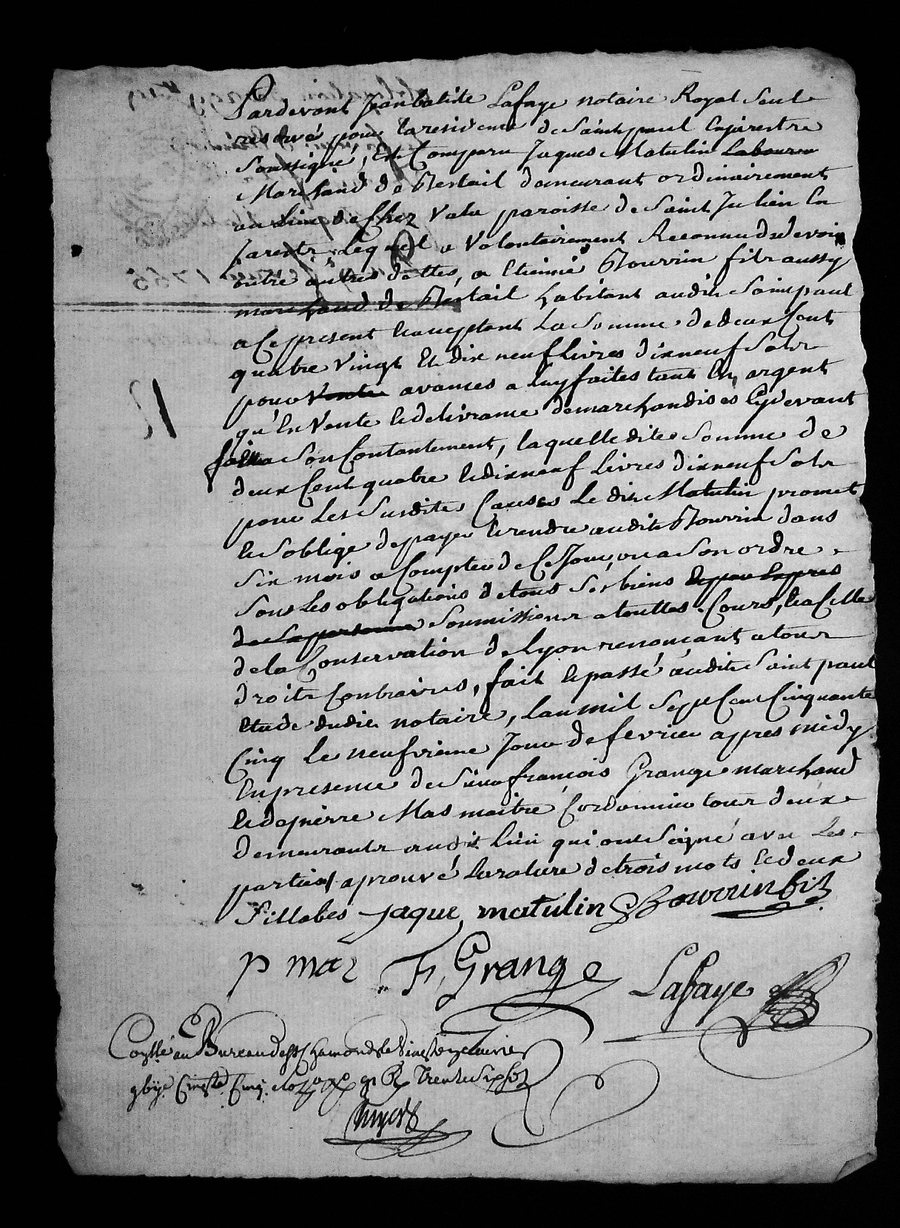 Pardevant Jean batiste Lafaye notaire Royal Seul
reservé pour la residence de Saint paul En jarestre
Soussigné, Est Comparu Jaques Matulin Laboure
Marchand de Bestail demeurant ordinairement
au lieu de Chez Vala paroisse de Saint Julien En
jarestz Lequel a Volontairement Reconnu devoir
entre autres dettes, a Etienne Bourrin fils aussy
marchand de Bestail habitant audit Saint paul
a Ce present Et acceptant La Somme de deux Cent
quatre Vingt Et dix neuf livres dixneuf Solz
pour avances a luy faites tant En argent
qu'En Vente Et delivrance de marchandises Cy devant
a Son Contantement, laquelle dite Somme de
deux Cent quatre Et dixneuf Livres dixneuf Solz
pour Les Susdites Causes Le dit Matulin promet
Et s'oblige de payer Et rendre audit Bourrin dans
Six mois a Compter de Ce Jour, ou a Son ordre
Sous Les obligations de tous Ses biens
Soumissions a touttes Cours, Et a Celle
de la Conservation de Lyon renonçant a tous
droits Contraires, fait Et passé audit Saint paul
Etude dudit notaire, L'an mil Sept Cent Cinquante
Cinq Le neufvieme Jour de fevrier appres midy
En presence de Sieur françois Grange marchand
Et de pierre Mas maitre Cordonnier tous deux
demeurants audit Lieu qui ont Signé avec Les
parties aprouvé La rature de trois mots Et deux
Sillabes Jaque matulin EBourrin fils
p mas f Grange Lafaye
Conttlé au Bureau de St Chamond Le Vingt
Cinqte Cinq Trente Six